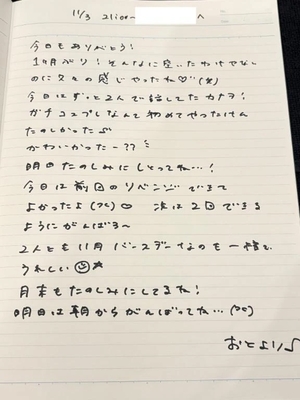 11/3 21:00~ へ
今日もありがとう!
1ヶ月ぶり! そんなに空いたわけじゃない
のに久々の感じやったね♡(笑)
今日はずっと2人で話してたカナヲ!
ガチコスプレなんて初めてやったけん
たのしかった♪
かわいかったー??
明日たのしみにしとってね…!
今日は前回のリベンジできて
よかったよ ♡ 次は2回できる
ようにがんばる~
2人とも11月バースデーなのも一緒で
うれしい☺★
月末もたのしみにしてるね!
明日は朝からがんばってね…
おとより♪